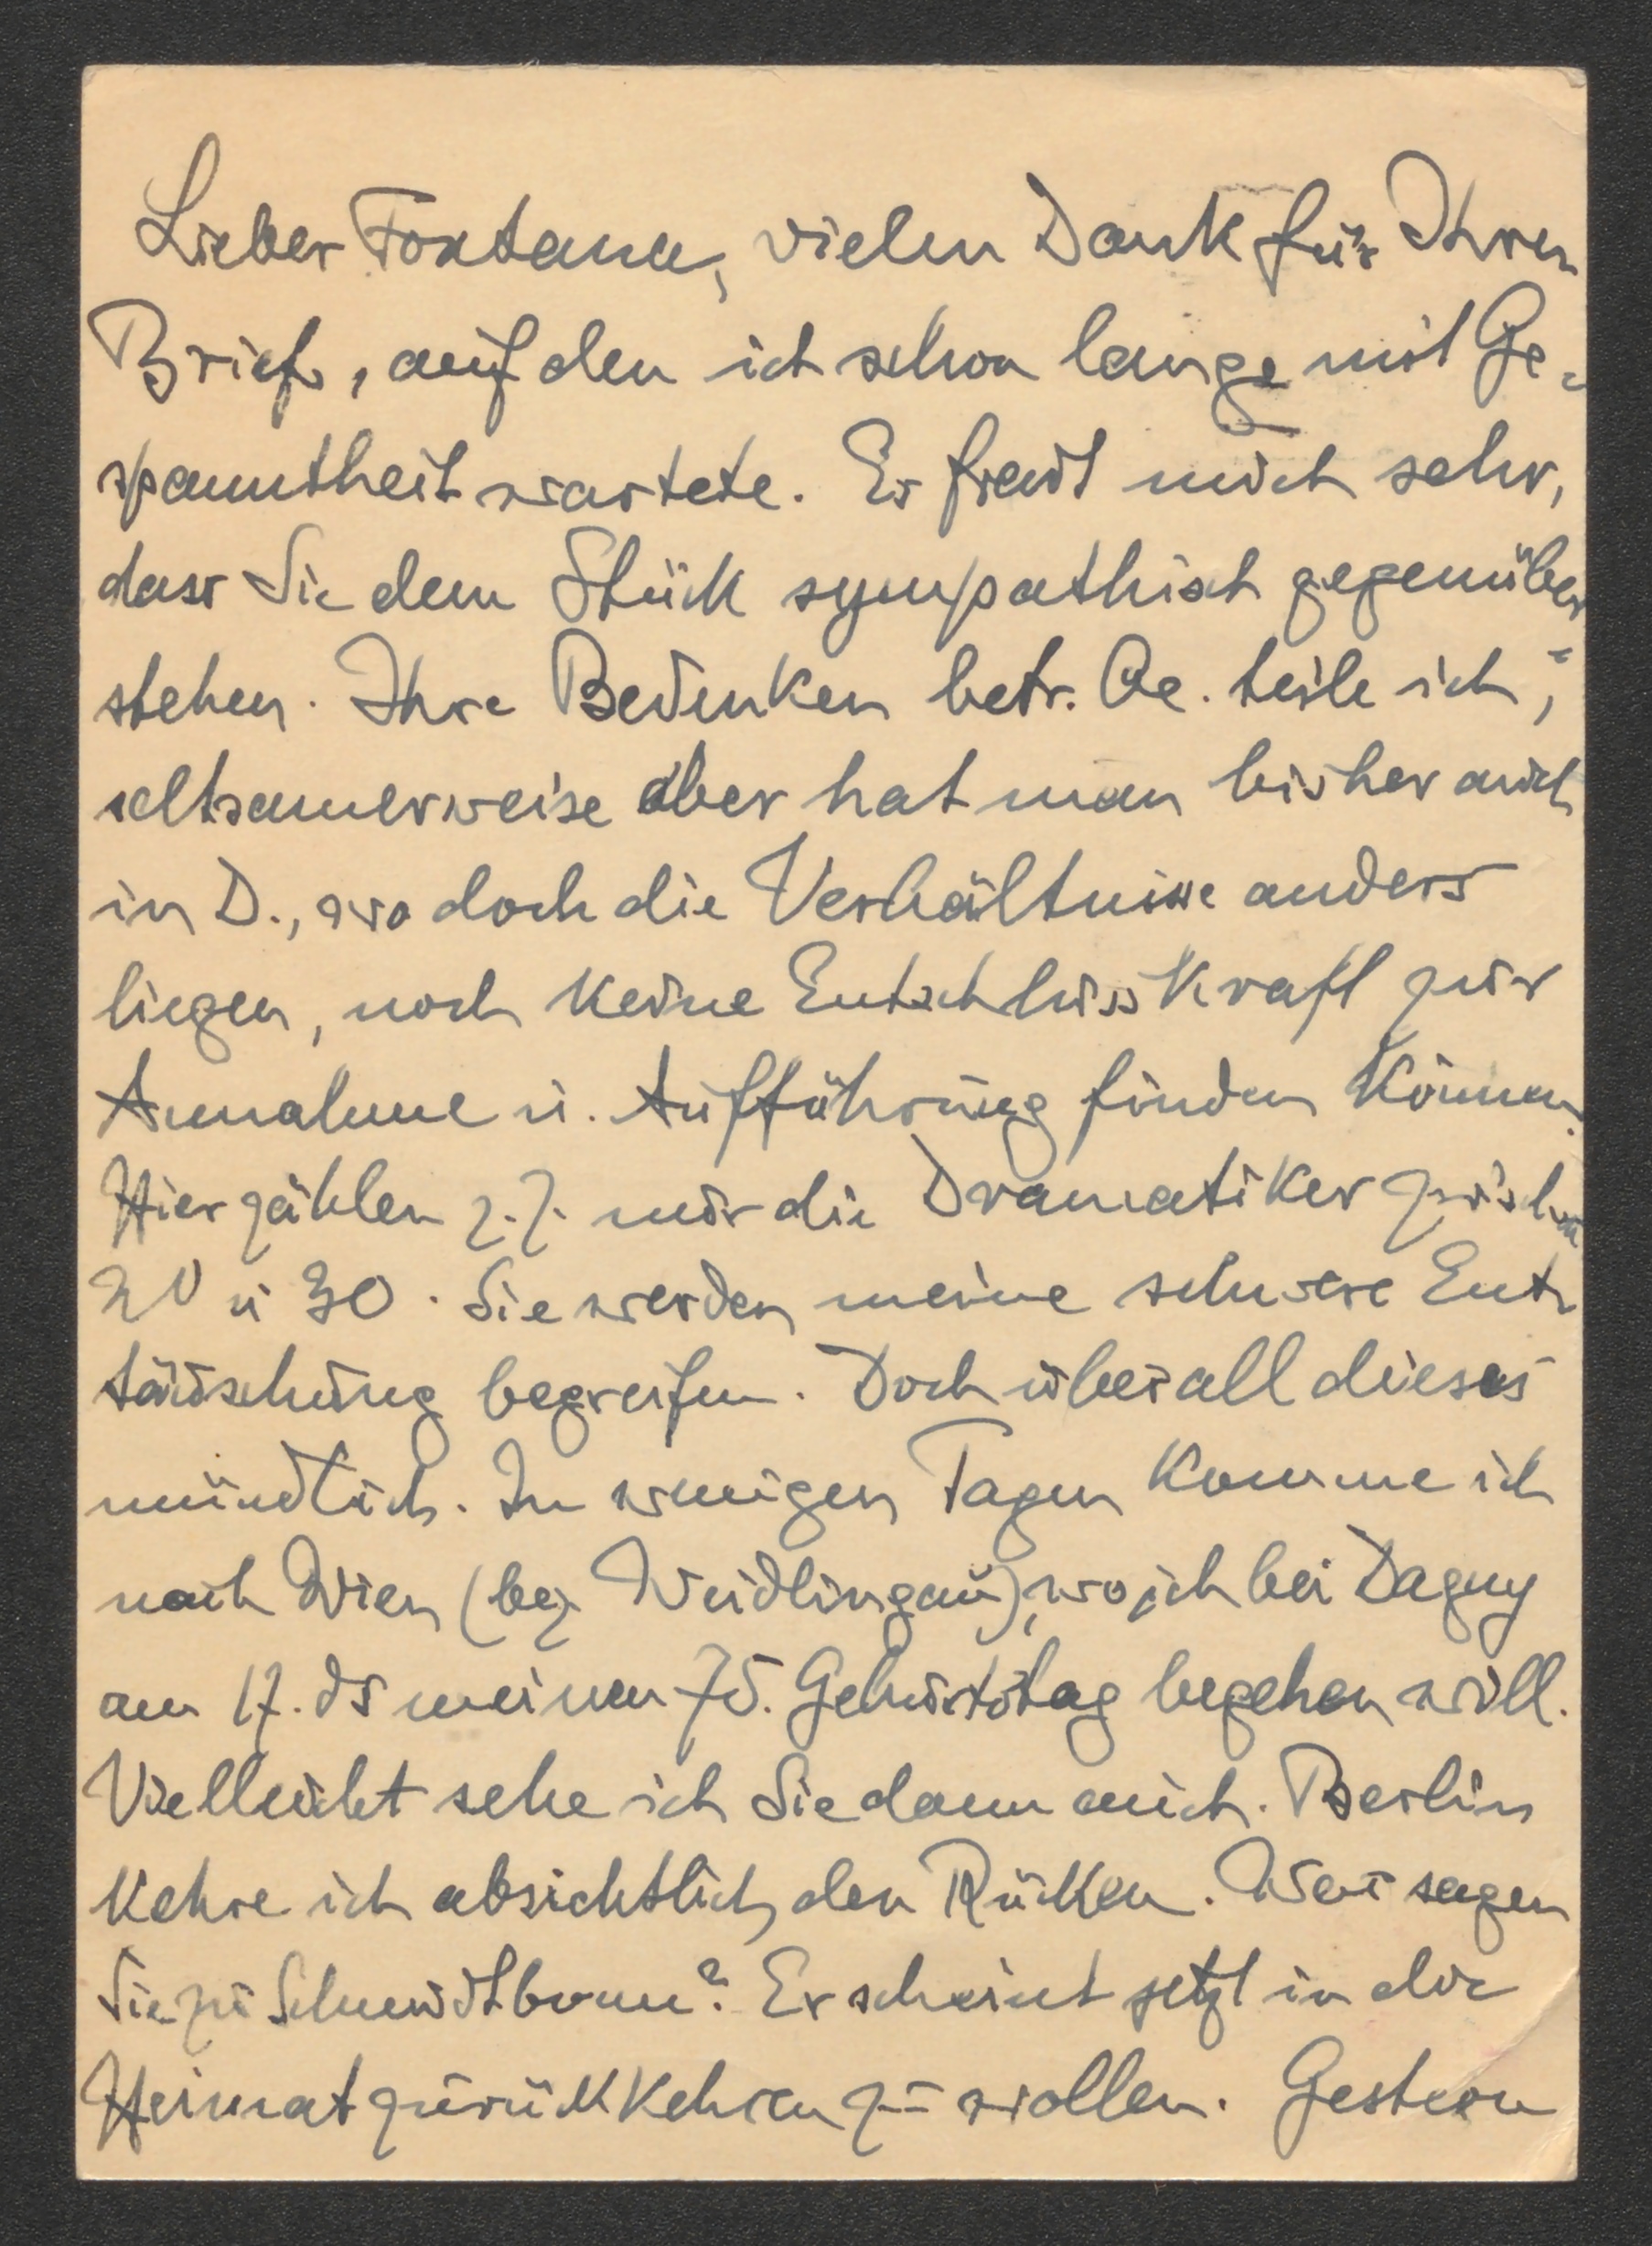 Lieber Fontana, vielen Dank für Ihren
Brief, auf den ich schon lange mit Ge-
spanntheit wartete. Es freut mich sehr,
dass Sie dem Stück sympathisch gegenüber
stehen. Ihre Bedenken betr. Oe. teile ich,
seltsamerweise aber hat man bisher auch
in D., wo doch die Verhältnisse anders
liegen, noch keine Entschlusskraft zur
Annahme u. Aufführung finden können.
Hier zählen z. Z. nur die Dramatiker zwischen
20 u 30. Sie werden meine schwere Ent-
täuschung begreifen. Doch über all dieses
mündlich. In wenigen Tagen komme ich
nach Wien (bez Weidlingau), wo ich bei Dagny
am 17. ds meinen 75. Geburtstag begehen will.
Vielleicht sehe ich Sie dann auch. Berlin
kehre ich absichtlich den Rücken. Was sagen
Sie zu Schmidtbonn? Er scheint jetzt in die
Heimat zurückkehren zu wollen. Gestern